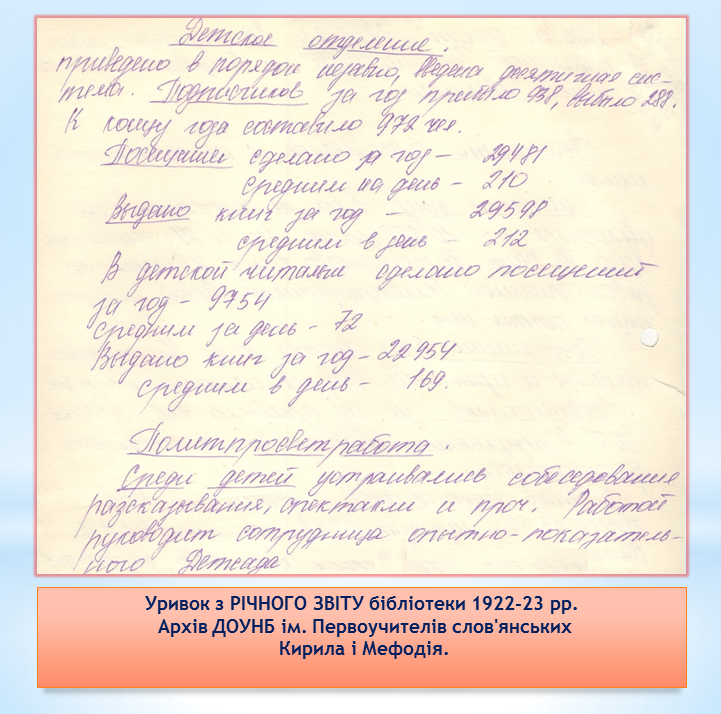 Детское отделение.
приведено в порядок недавно, введена десятичная сис-
тема. Подписчиков за год прибыло 938, выбыло 288.
К концу года составило 972 чел.
Посещений сделано за год - 29481
средним на день - 210
Выдано книг за год - 29598
средним в день - 212
В детской читальне сделано посещений
за год - 9754
средним за день - 72
Выдано книг за год - 22954
средним в день - 169.
Политпросветработа.
Среди детей устраивались собеседования
разсказывания, спектакли и проч. Работой
руководит сотрудница опытно-показатель-
ного Детсада
Уривок з РІЧНОГО ЗВІТУ бібліотеки 1922-23 рр.
Архів ДОУНБ ім. Первоучителів слов'янських
Кирила і Мефодія.